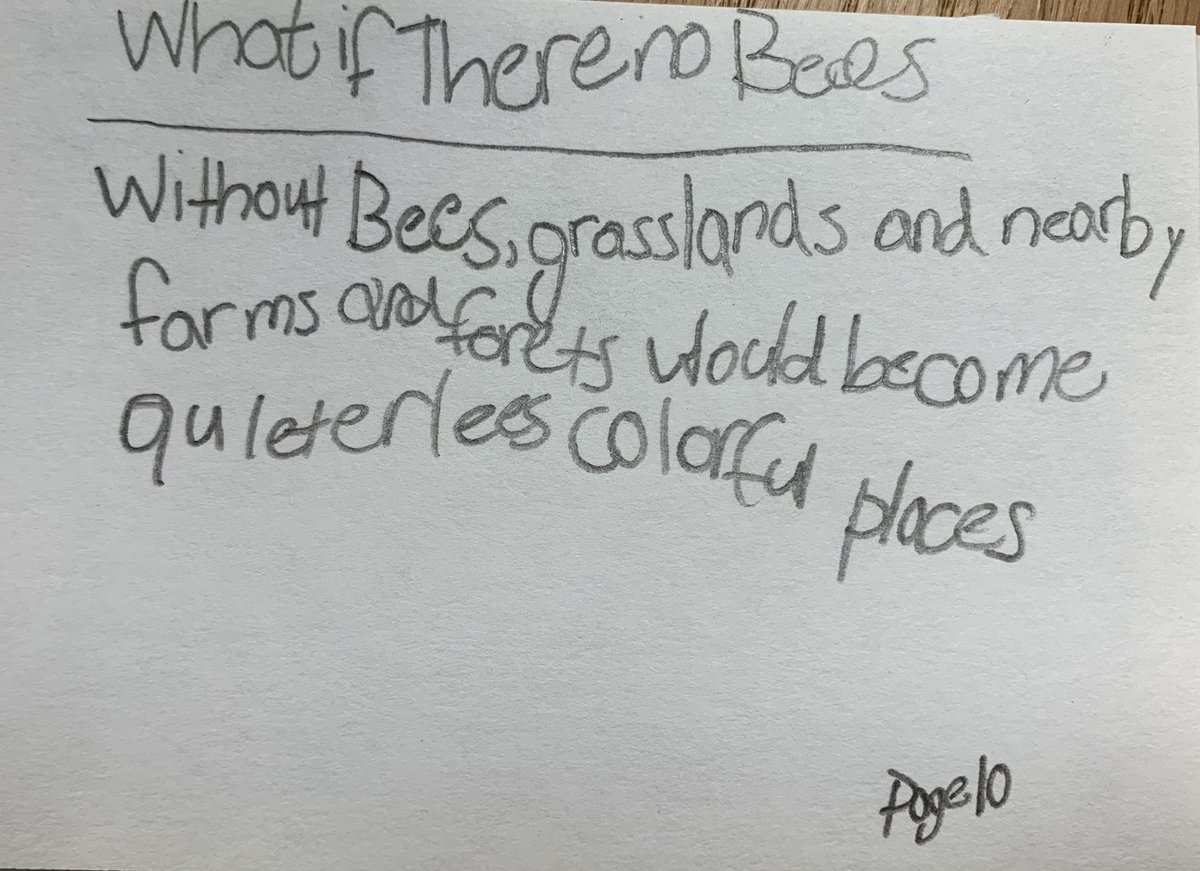 What if There no Bees
Without Bees, grasslands and nearby
farms and forets would become
quieter lees colorful places
Page 10